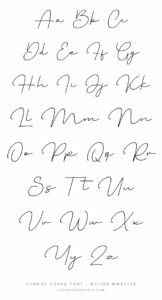 Aa Bb Cc
Dd Ee Ff Gg
Hh Ii Jj Kk
Ll Mm Nn
Oo Pp Qq Rr
Ss Tt Uu
Vv Ww Xx
Yy Zz
CURSIVE CANVA FONT - BILLION MIRACLES